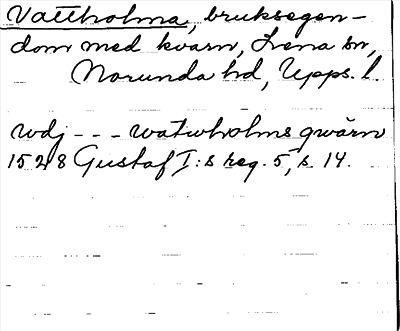 Vattholma, bruksegen-
dom med kvarn, Lena sn,
Norunda hd, Upps. l.
wdj - - - watwholms qwärn
1528 Gustaf I:s reg. 5, s. 14.